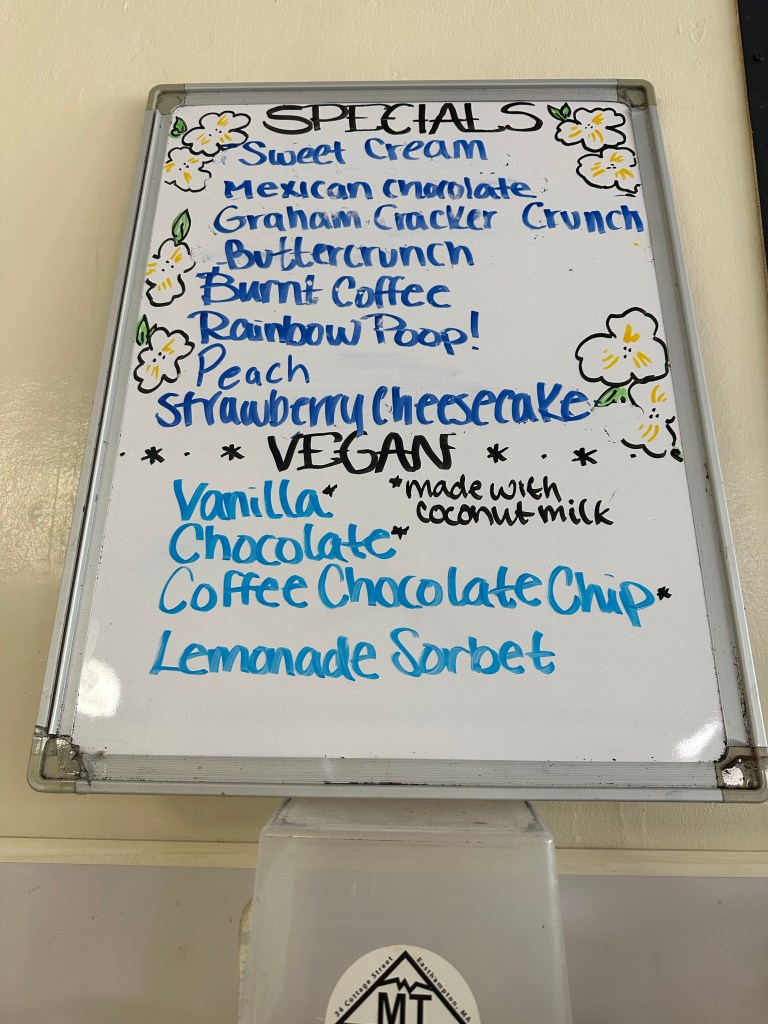 SPECIALS
Sweet Cream
Mexican Chocolate
Graham Cracker Crunch
Buttercrunch
Burnt Coffee
Rainbow Poop!
Peach
Strawberry Cheesecake
* * VEGAN * *
Vanilla* *made with
coconut milk
Chocolate*
Coffee Chocolate Chip*
Lemonade Sorbet
34 Cottage Street Easthampton, MA
MT